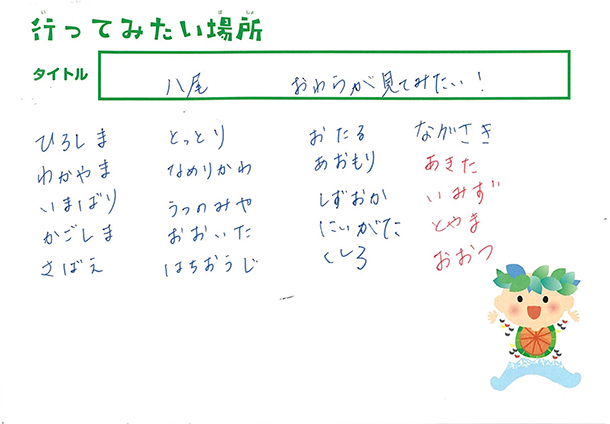 行ってみたい場所
タイトル 八尾 おわらが見てみたい!
ひろしま とっとり おたる ながさき
わかやま なめりかわ あおもり あきた
いまばり うつのみや しずおか いみず
かごしま おおいた にいがた とやま
さばえ はちおうじ くしろ おおつ